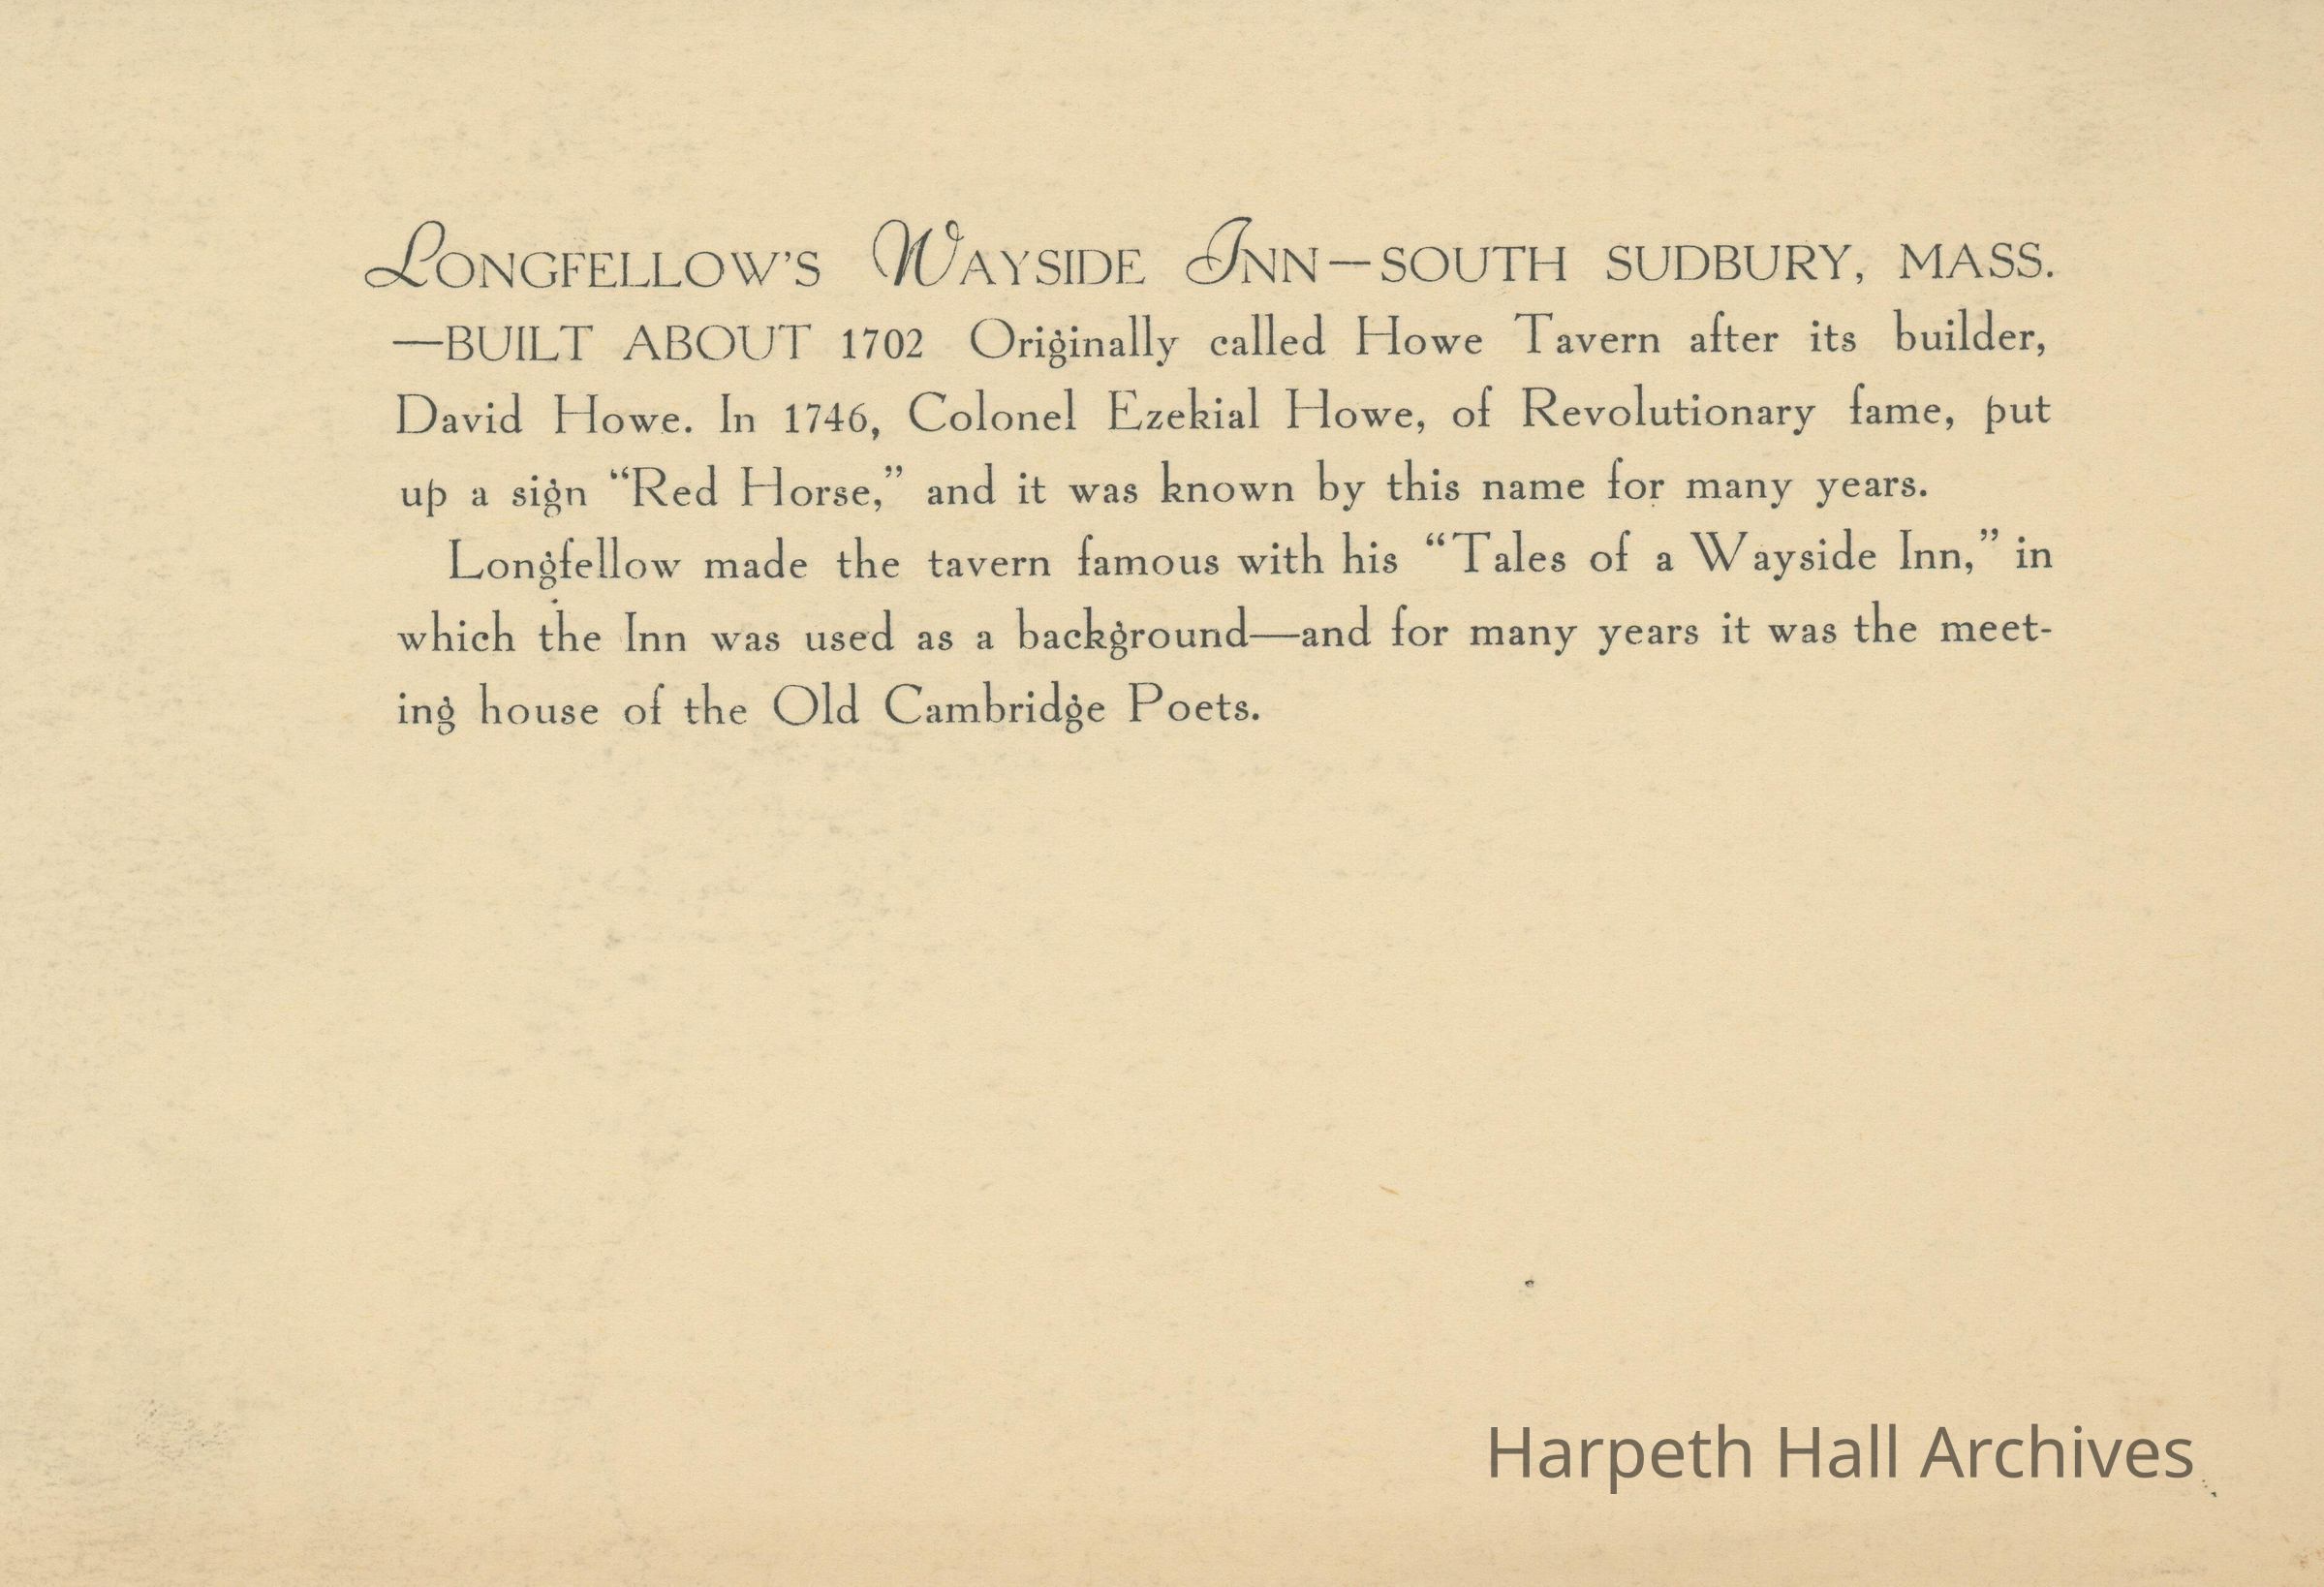 LONGFELLOW'S WAYSIDE INN—SOUTH SUDBURY, MASS.
—BUILT ABOUT 1702 Originally called Howe Tavern after its builder,
David Howe. In 1746, Colonel Ezekial Howe, of Revolutionary fame, put
up a sign “Red Horse,” and it was known by this name for many years.
Longfellow made the tavern famous with his “Tales of a Wayside Inn,” in
which the Inn was used as a background—and for many years it was the meet-
ing house of the Old Cambridge Poets.
Harpeth Hall Archives